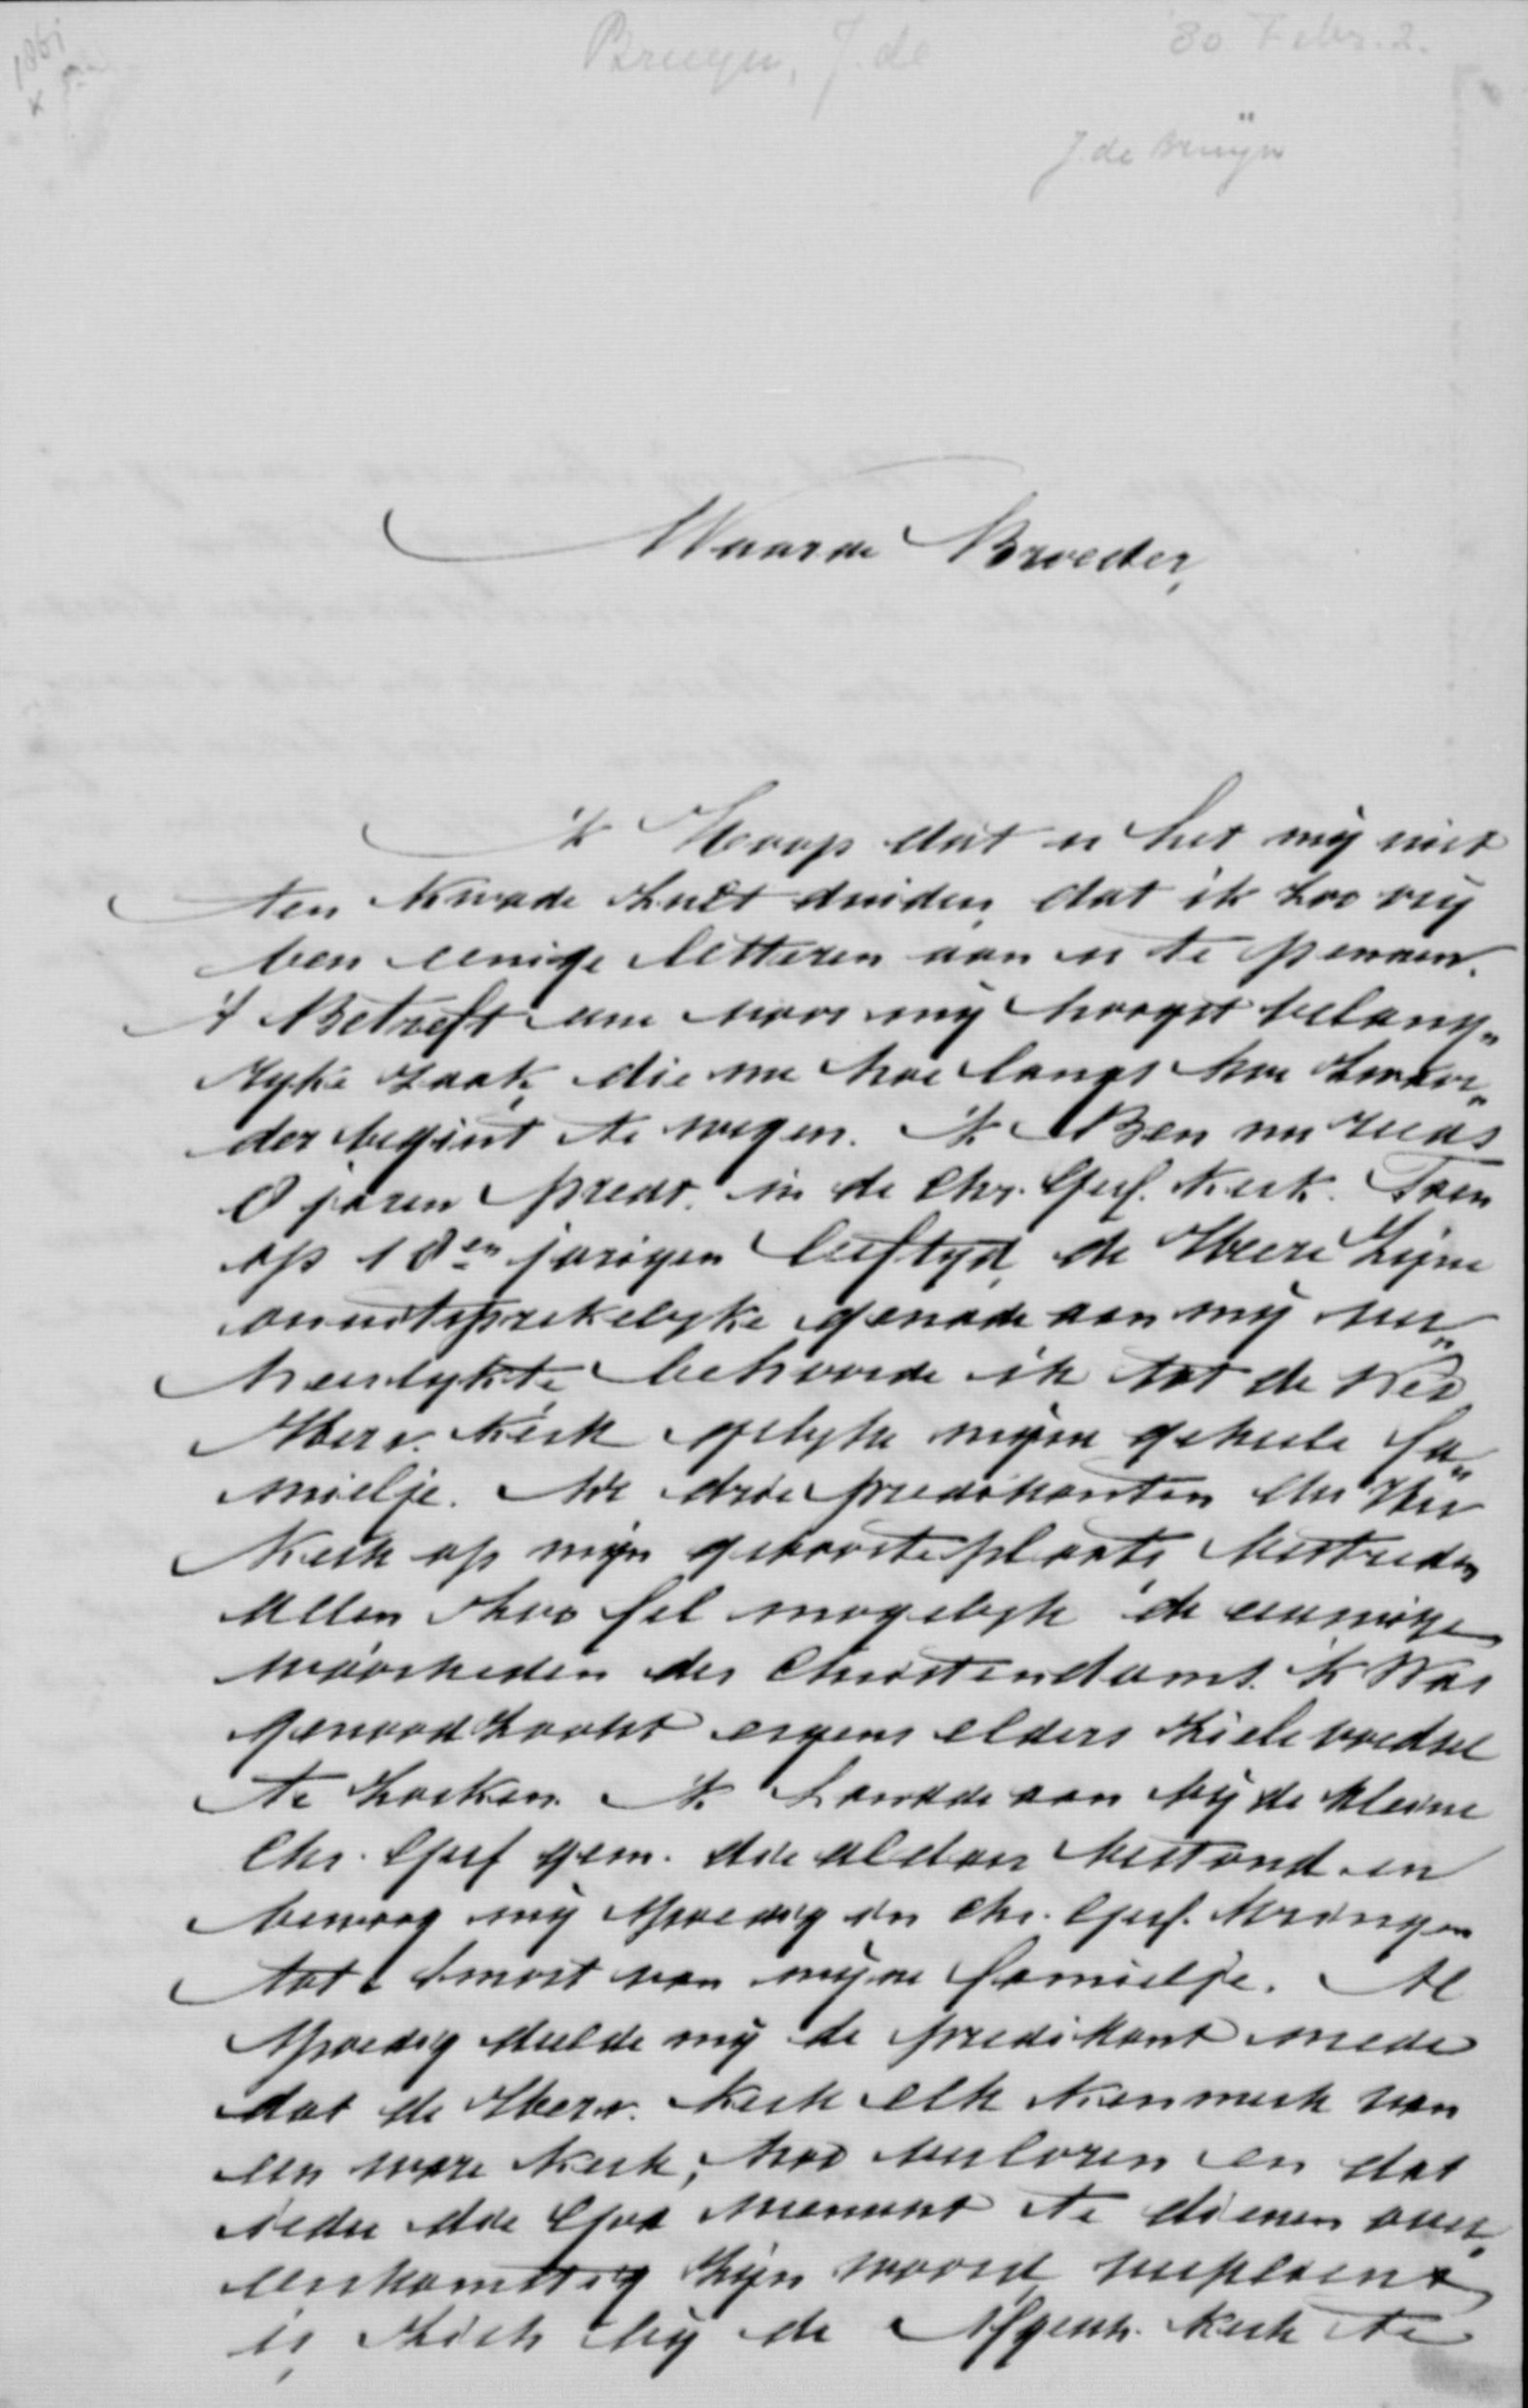 1861
Bruyn, J. de
80 Febr. 2.
J. de Bruÿn
Waarde Broeder,
'k Hoop dat u het mij niet
ten kwade zult duiden, dat ik zoo vrij
ben eenige letteren aan u te pennen.
't Betreft eene voor mij hoogst belang„
rijke zaak, die me hoe langs hoe zwaar„
der begint te wegen. 'k Ben nu reeds
8 jaren predt. in de Chr. Geref. Kerk. Toen
op 18en jarigen leeftijd, de Heere Zijne
onuitsprekelijke genade aan mij ver„
heerlijkte, behoorde ik tot de Ned.
Herv. Kerk gelijk mijne geheele fa„
mielje. De drie predikanten der Her
Kerk op mijn geboorteplaats, bestreden
allen zoo fel mogelijk de eeuwige
waarheden des Christendoms. 'k Was
genoodzaakt ergens elders zielevoedsel
te zoeken. 'k Landde aan bij de kleine
Chr. Geref gem. die aldaar bestond en
bewoog mij spoedig in Chr. Geref. kringen
tot smart van mijne familje. Al
spoedig deelde mij de predikant mede
dat de Herv. Kerk elk kenmerk van
een ware Kerk, had verloren en dat
ieder die God wenscht te dienen over„
eenkomstig Zijn woord verplicht
is, zich bij de Afgesch. Kerk te